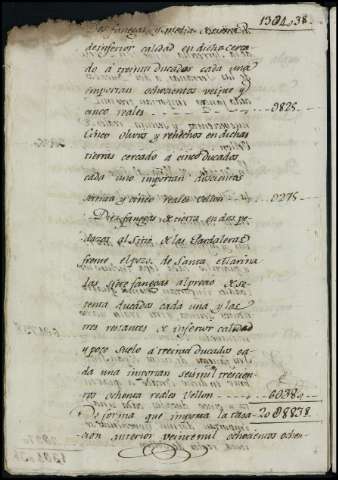 13@4@38.
Dos fanegas y media de tierra de
de inferior calidad en dicho cerca-
do á treinta ducados cada una
importan ochocientos veinte y
cinco reales @825.
Cinco olivos y rehechos en dichas
tierras cercado á cinco ducados
cada uno importan doscientos
setenta y cinco reales vellon @275.
Diez fanegas de tierra en dos pe-
dazos al Sitio de las Gardaleras
frente el pozo de Santa Marina
las siete fanegas al precio de se-
tenta ducados cada una y las
tres restantes de inferior calidad
y poco suelo a treinta ducados ca-
da una importan seis mil trescien-
tos ochenta reales Vellon 6@380.
De forma que importa la tasa- 20@8838.
cion anterior veinte mil ochocientos ochen-